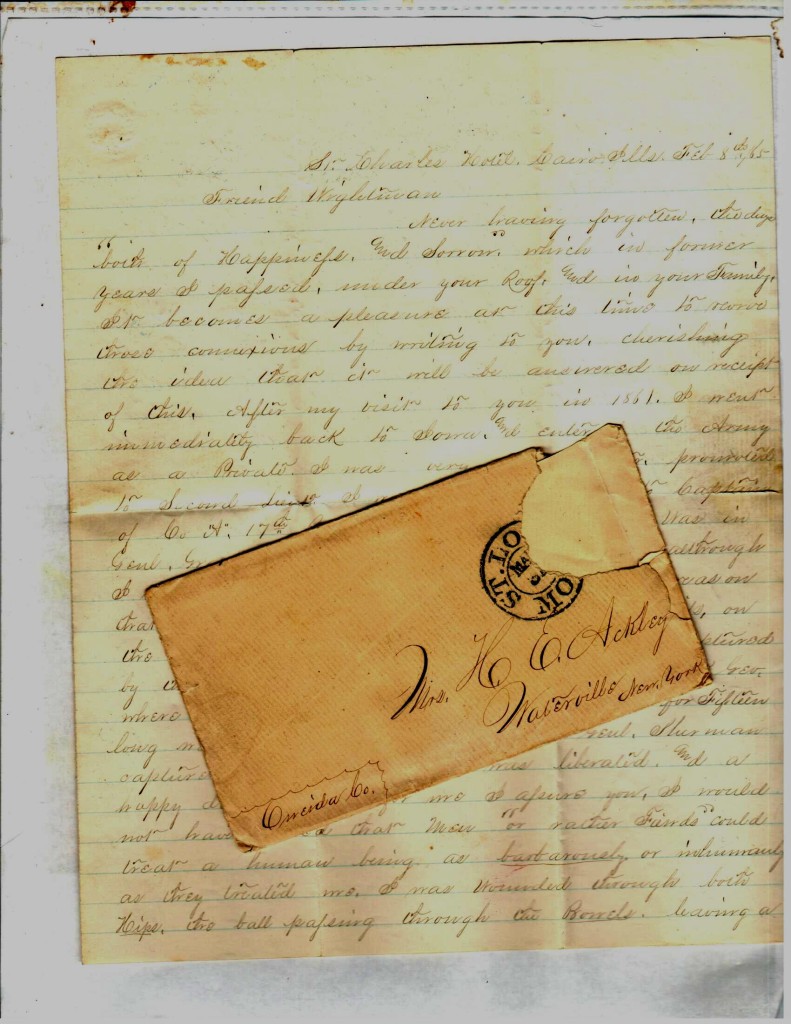 St. Charles Hotel. Cairo. Ills. Feb 8th, /65
Friend Wrightman
Never having forgotten, the days
"both of Happiness. And Sorrow" which in former
years I passed, under your Roof. And in your Family.
It becomes a pleasure at this time to renew
those connexions by writing to you. cherishing
the idea that it will be answered on receipt
of this. After my visit to you in 1861. I went
immediality back to Iowa. And enter the Army
as a Private. I was very promoted
to Second Lieut. I to Captain
of Co "A". 17th Was in
Genl. although
I was on
that on
the captured
by Geo.
where for Fifteen
long Genl. Sherman
capture was liberated. And a
happy me I assure you. I would
not have that Men "or rather Fiends" could
treat a human being as barbarously or inhumanly
as they treated me. I was wounded through both
Hips. the ball passing through the Bowels. leaving a
ST. LO
MO
MA
Mrs. H. E. Ackley
Waterville New. York
Oneida Co.